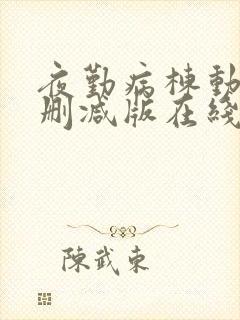 夜勤病棟動
删减版在綫
陳武東